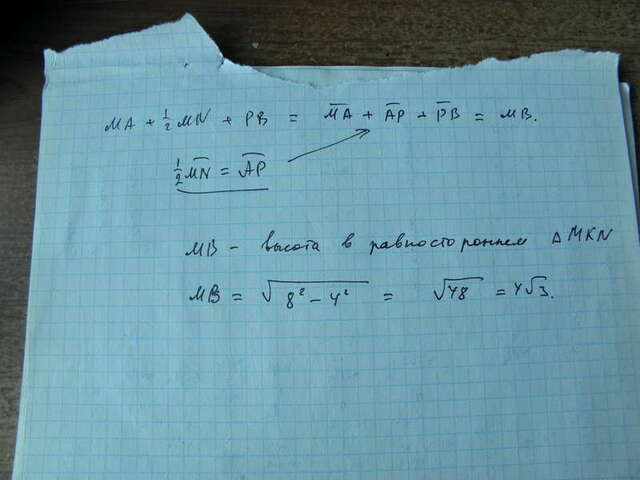 MA + 1/2 MN + PB = M̅A̅ + A̅P̅ + P̅B̅ = MB.
1/2 M̅N̅ = A̅P̅
MB – высота в равностороннем Δ MKN
MB = √(8² – 4²) = √48 = 4√3.